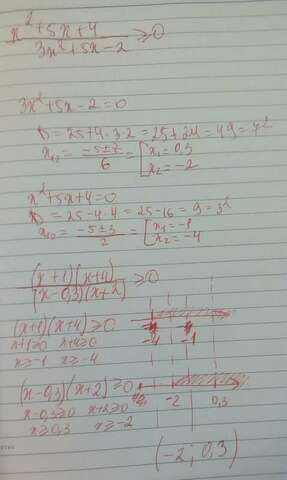 x²+5x+4 / 3x²+5x-2 ≥0
3x²+5x-2=0
D=25+4·3·2=25+24=49=7²
x₁,₂= -5±7 / 6 = [x₁=0,3 x₂=-2
x²+5x+4=0
D=25-4·4=25-16=9=3²
x₁,₂= -5±3 / 2 = [x₁=-1 x₂=-4
(x+1)(x+4) / (x-0,3)(x+2) ≥0
(x+1)(x+4)≥0
x+1≥0 x+4≥0
x≥-1 x≥-4
-4 -1
(x-0,3)(x+2)≥0
x-0,3≥0 x+2≥0
x≥0,3 x≥-2
-2 0,3
(-2; 0,3)